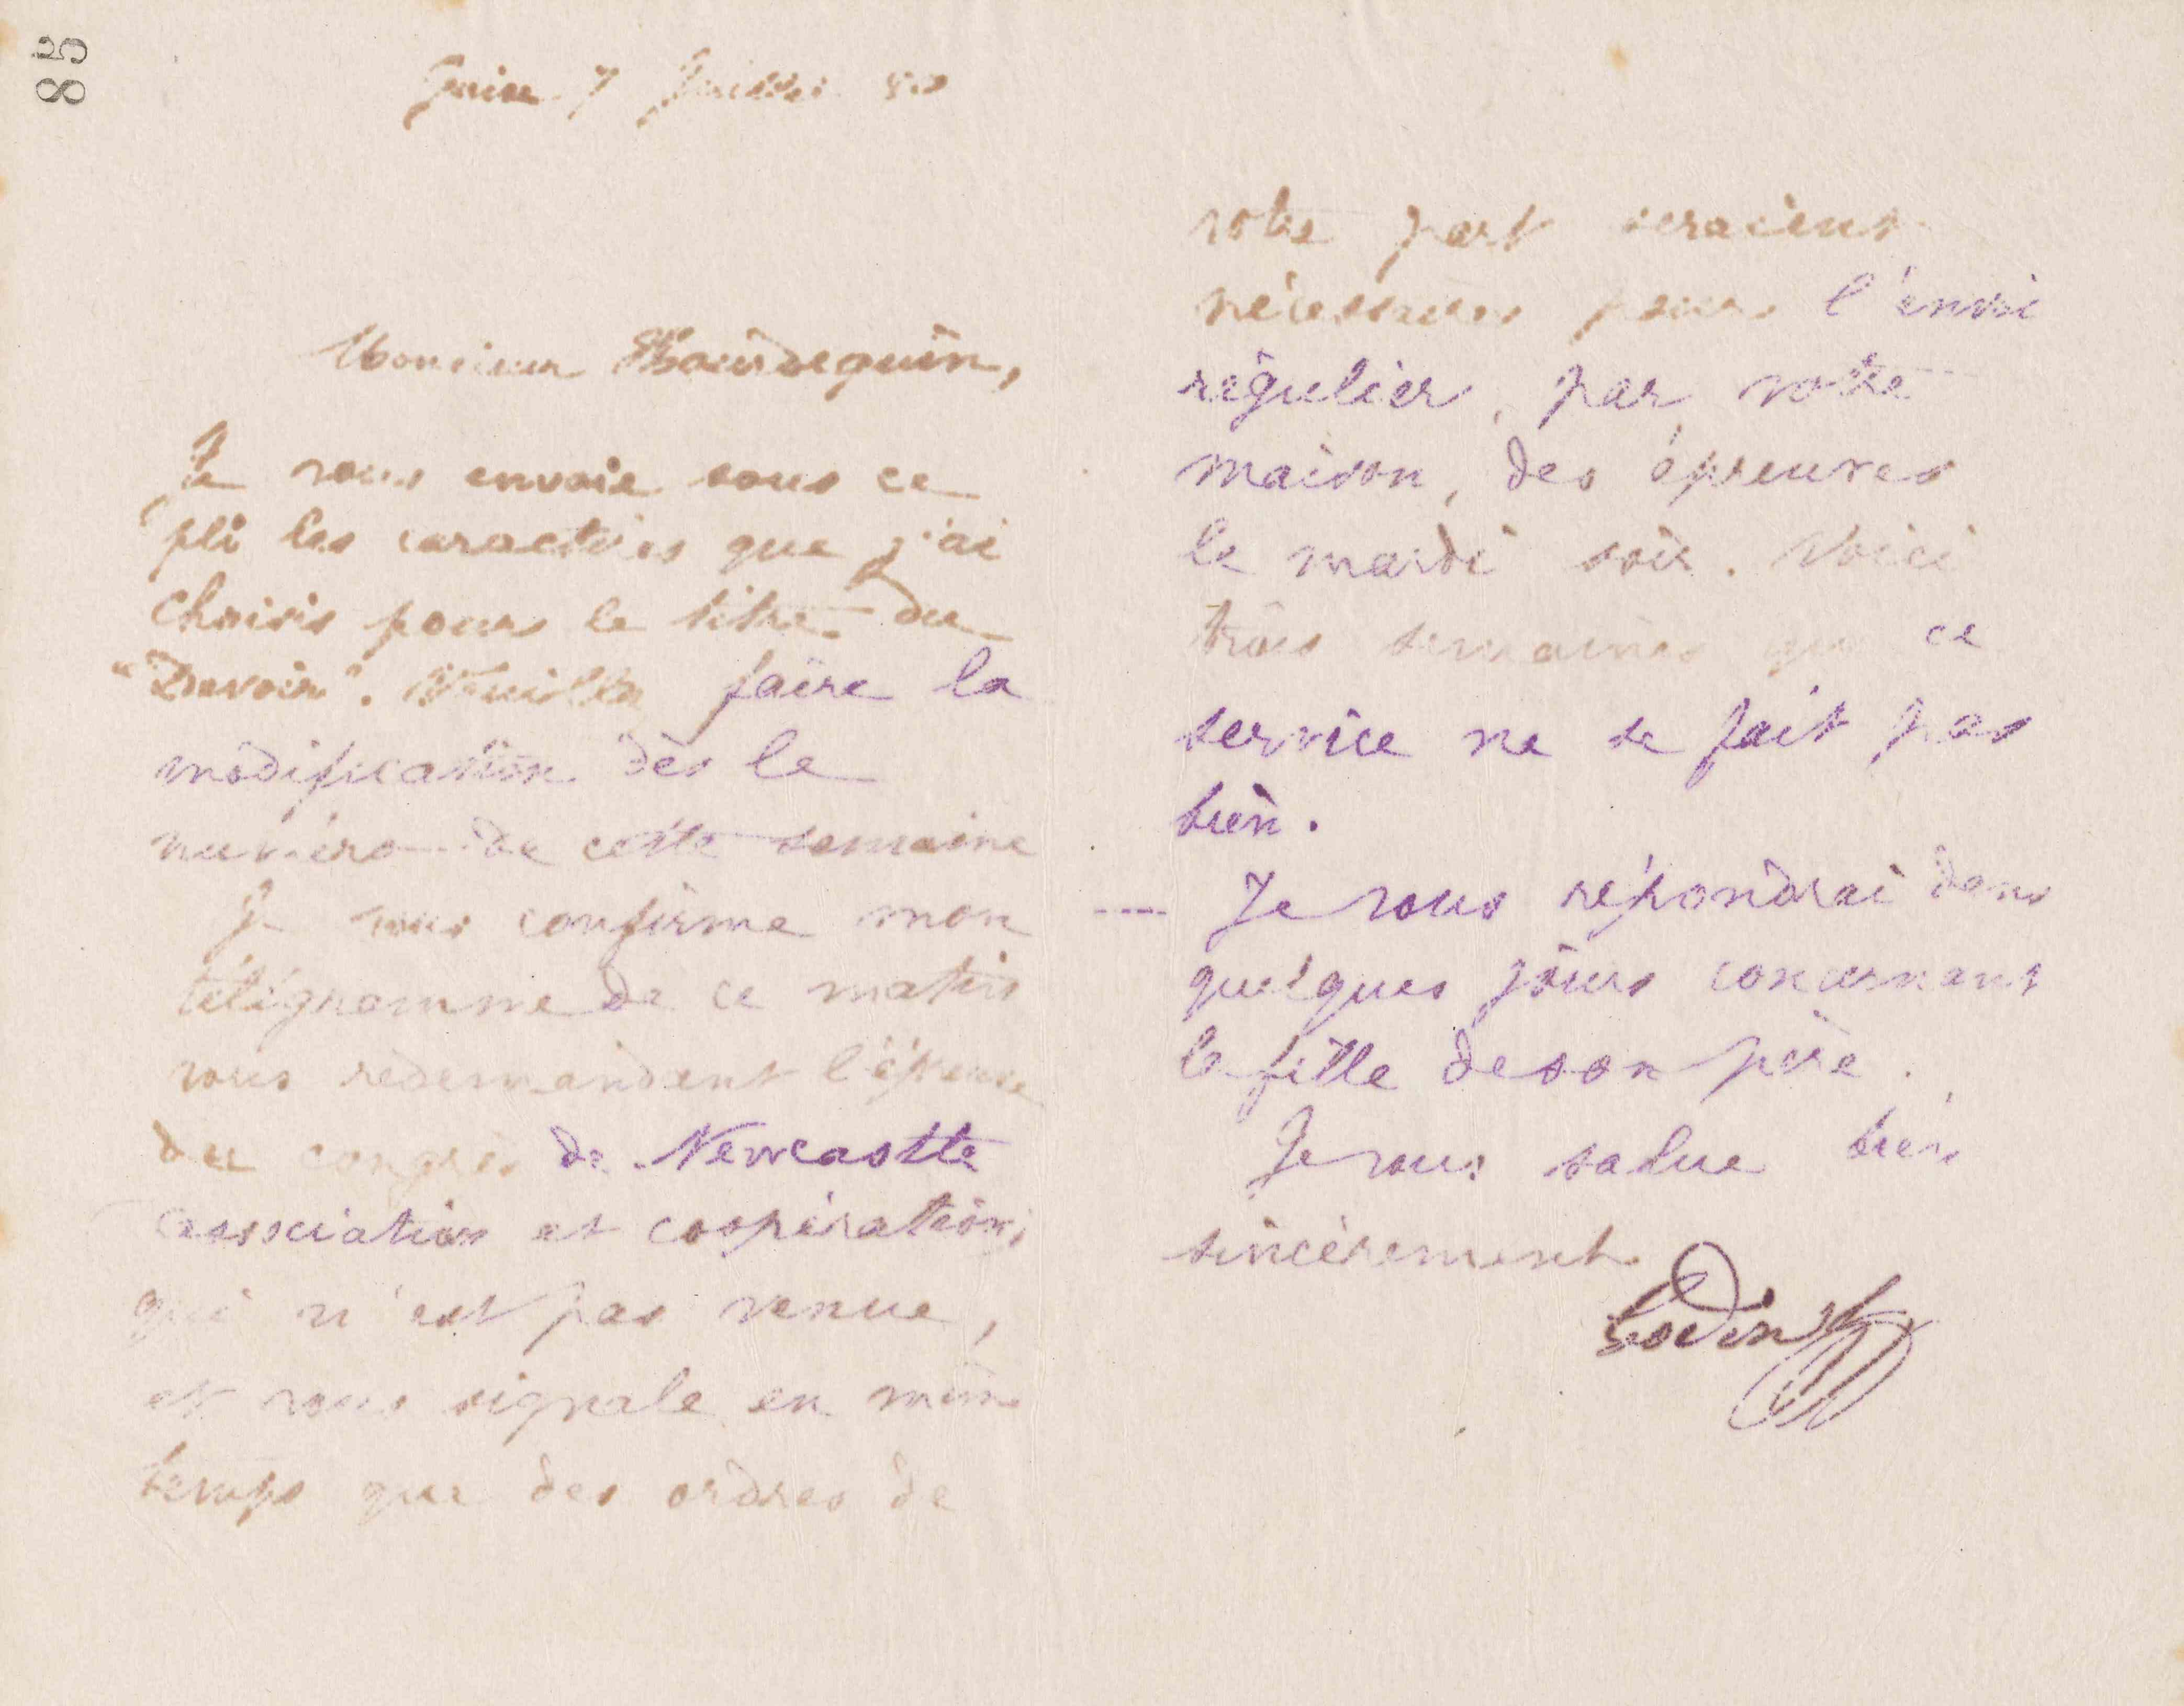 85
Guise 7 Juillet 80
Monsieur Bourdeguin,
Je vous envoie sous ce
pli les caractères que j'ai
choisis pour le titre du
"Devoir". Veuillez faire la
modification dès le
numéro de cette semaine
Je vous confirme mon
télégramme de ce matin
vous redemandant l'épreuve
du congrès de Newcastle
association et coopération,
qui n'est pas venue,
et vous signale en même
temps que des ordres de
votre part seraient
nécessaires pour l'envoi
régulier, par votre
maison, des épreuves
le mardi soir. Voici
trois semaines que ce
service ne se fait pas
bien.
Je vous répondrai dans
quelques jours concernant
la fille de son père.
Je vous salue bien
sincèrement
Godin